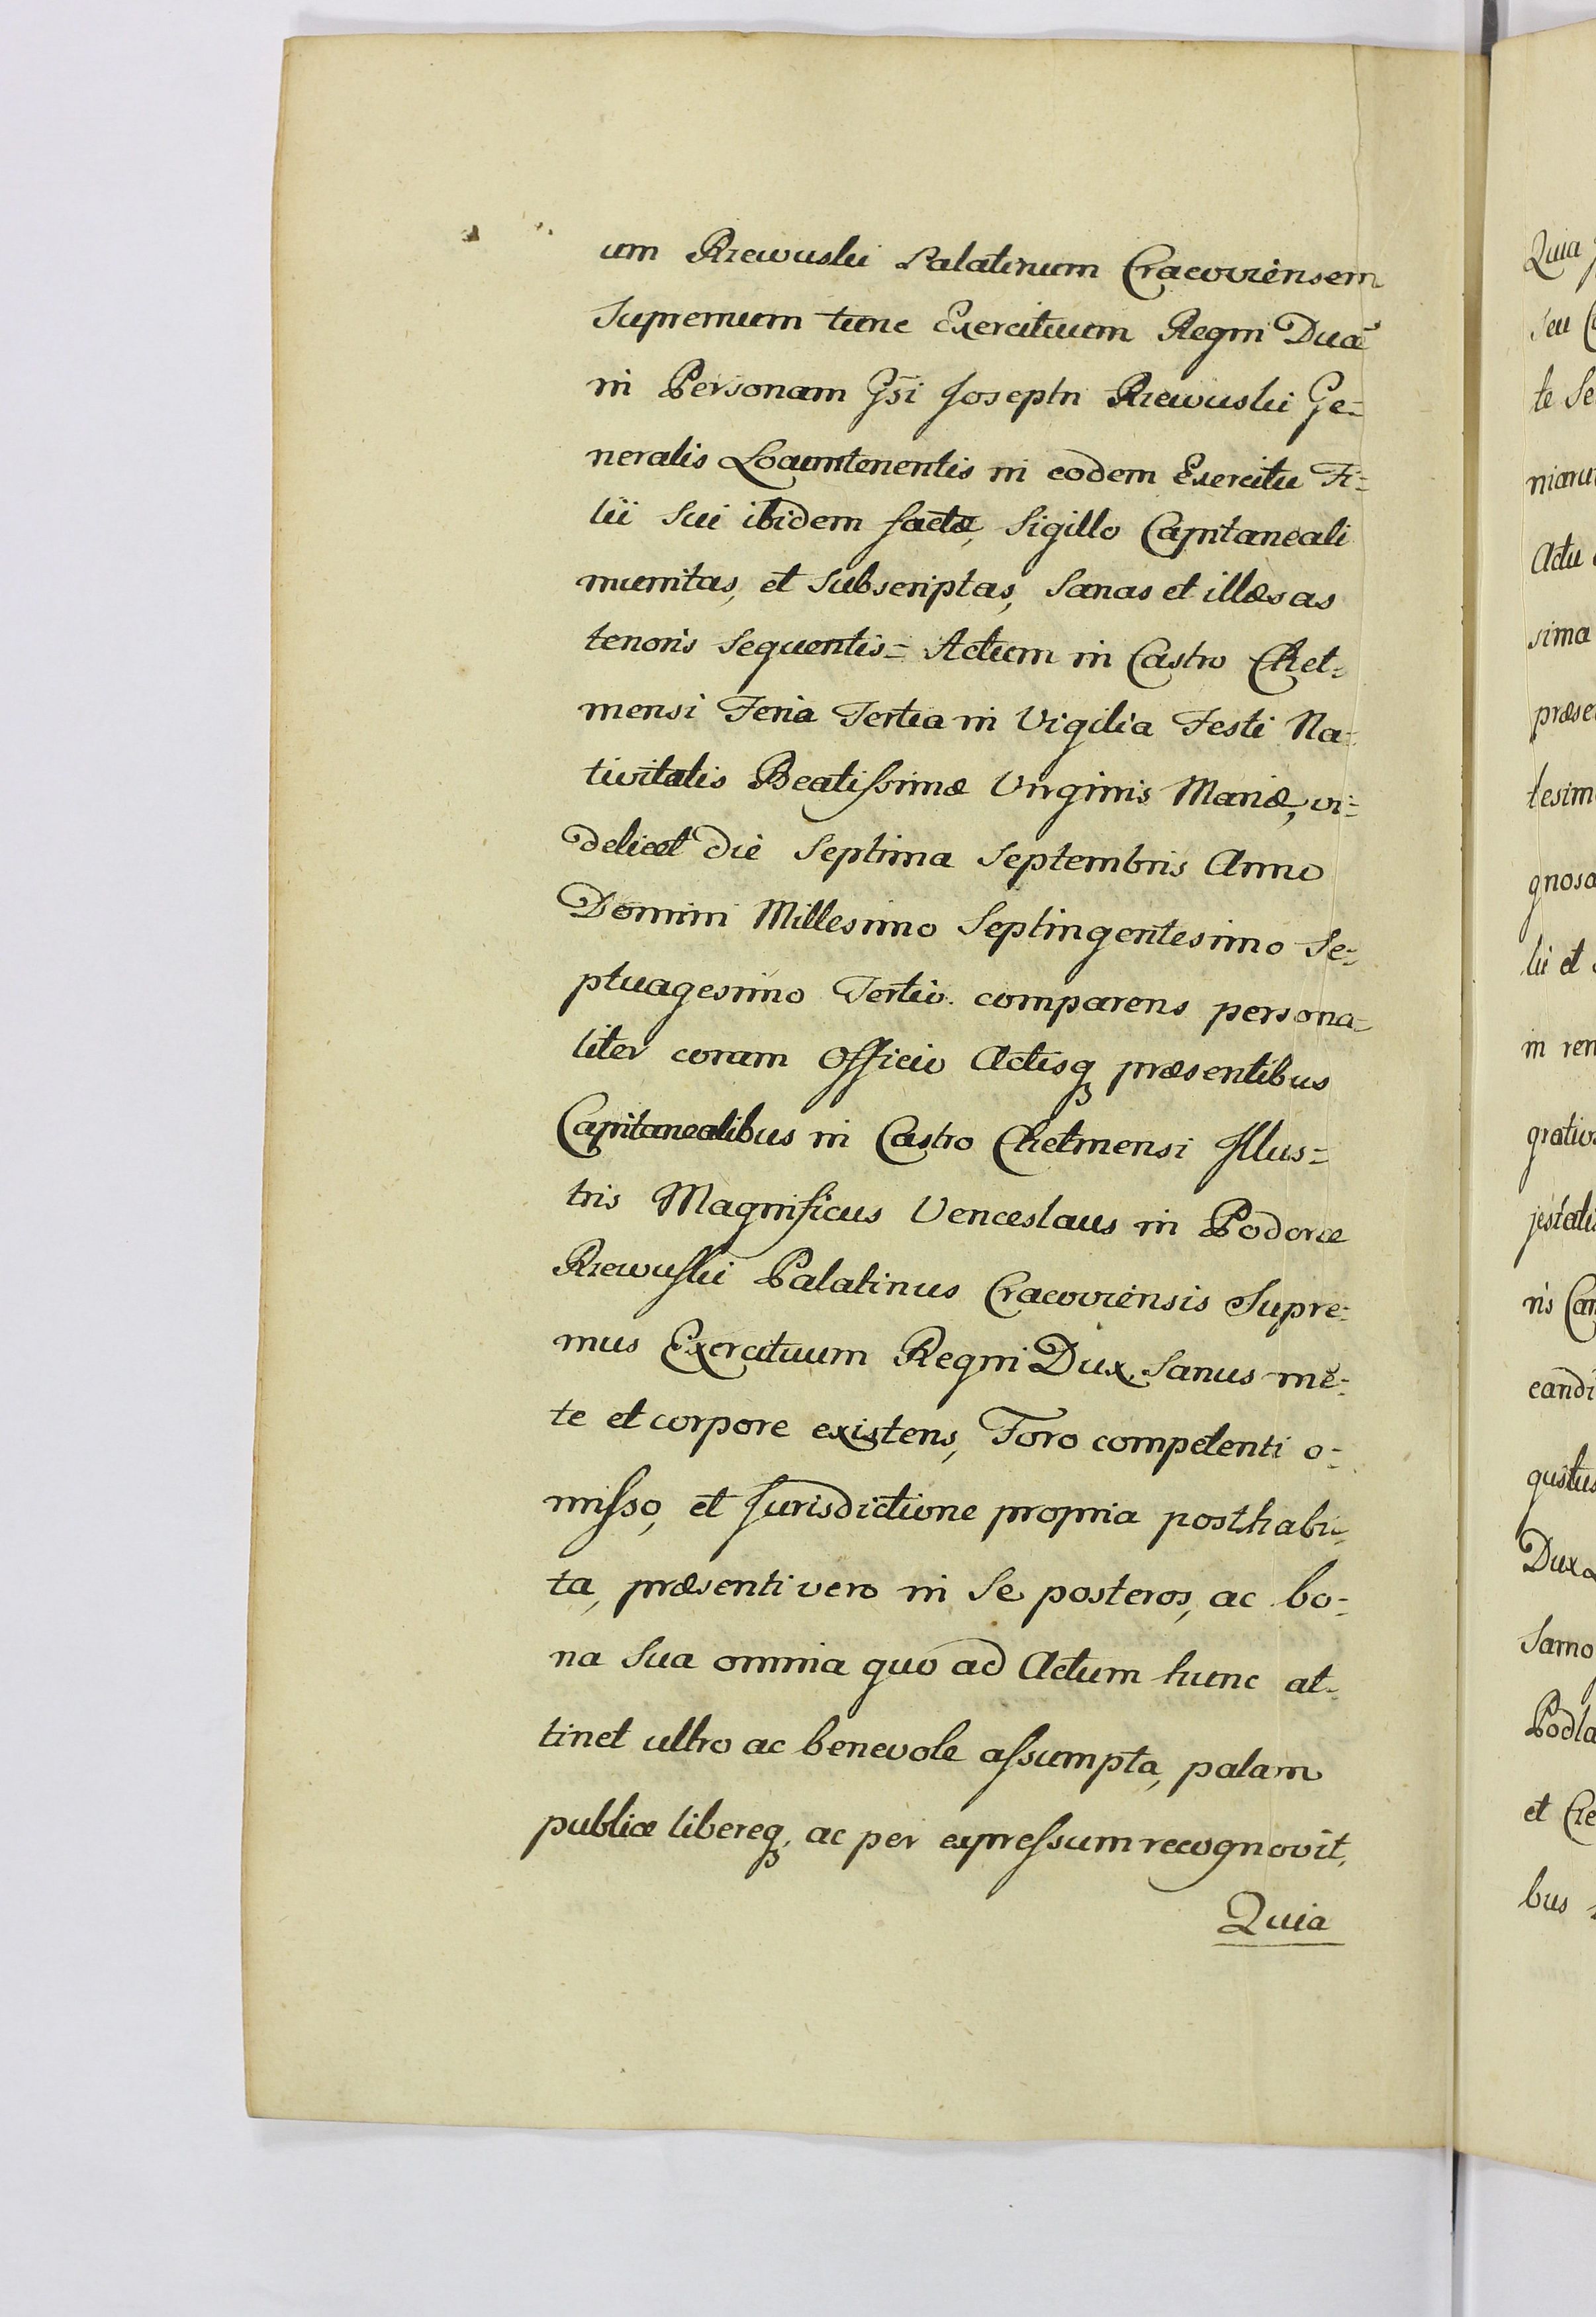 um Rzewuski Palatinum Cracoviensem
Supremum tunc Exercituum Regni Ducē
in Personam Gsi Josephi Rzewuski Ge=
neralis Locumtenentis in eodem Exercitu Fi=
lii Sui ibidem factæ, Sigillo Capitaneali
munitas, et Subscriptas, Sanas et illæsas
tenoris Sequentis= Actum in Castro Chel=
mensi Feria Tertia in Vigilia Festi Na=
tivitatis Beatissimæ Virginis Mariæ, vi=
delicet die Septima Septembris Anno
Domini Millesimo Septingentesimo Se=
ptuagesimo Tertio. comparens persona=
liter coram Officio Actisq præsentibus
Capitanealibus in Castro Chelmensi Illus=
tris Magnificus Venceslaus in Podorce
Rzewuski Palatinus Cracoviensis Supre=
mus Exercituum Regni Dux, Sanus mē=
te et corpore existens, Foro competenti o=
misso, et Jurisdictione propria posthabi=
ta, præsenti vero in Se posteros, ac bo=
na Sua omnia quo ad Actum hunc at=
tinet ultro ac benevole assumpta, palam
publice libereq, ac per expressum recognovit,
Quia
Quia
seu
te Se
Actu
sima
præse
tesim
gnosc
lii et
in rem
jestatis
ris Cap
candi
gustus
Dux
Samo
Podla
et
bus